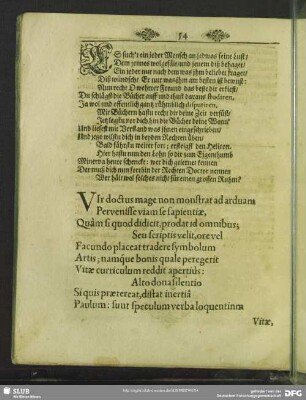 54
ES sucht ein jeder Mensch an etwas seine lust:
Dem jenns wolgefält und jenem diß behaget/
Ein jeder nur nach dem was ihm beliebet fraget/
Diß wündschet Er nur was ihm am besten ist bewust:
Nun recht Du wehrter Freund das beste dir erkiest/
Du schlägst die Bücher auff und thust daraus studiren,
Ja wol und offentlich ganz rühmlich disputiren,
Mir Büchern hastu recht dir deine Zeit versüst
Jetz legstu vor dich hin die Bücher deine Wonn'
Und liesest mit Verstand was ihnen eingeschrieben/
Und jene wilstu dich in beyden Rechten üben;
Bald fährstu weiter fort; ersteigst den Helicon.
Hier hastu nun den Lohn so dir zum Eigenthumb
Minerva heute schenckt: wer dich gelehrter kennen
Der muß dich nun forthin der Rechten Doctor nennen
Wer hält wol solches nicht für einen grossen Ruhm?
VIr doctus mage non monstrat ad arduam
Pervenisse viam se sapientiæ,
Quàm si quod didicit, prodat id omnibus;
Seu scriptis velit, ore vel
Facundo placeat tradere symbolum
Artis; namque bonis quale peregerit
Vitæ curriculum reddit apertiùs:
Alto dona silentio
Si quis prætereat, distat inertiâ
Paulum: sunt speculum verba loquentium
Vitæ,
SLUB
Wir führen Wissen.
DFG